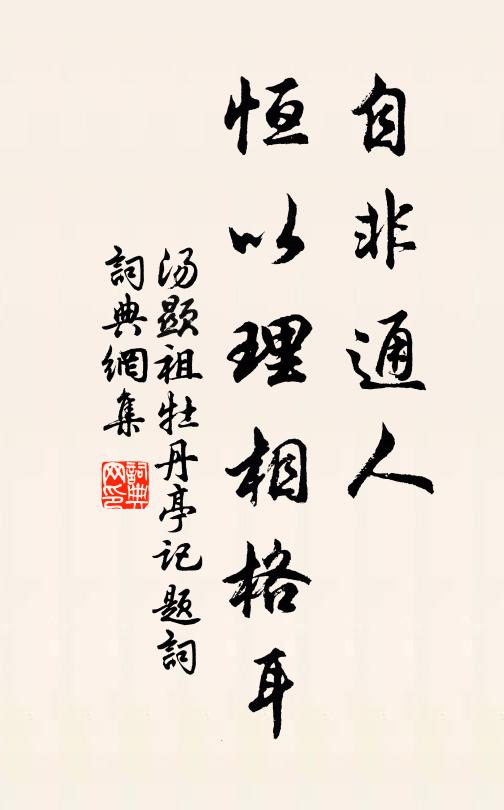 自非通人
恒以理相格耳
汤显祖牡丹亭记题詞
詞典網集
詞典
网印